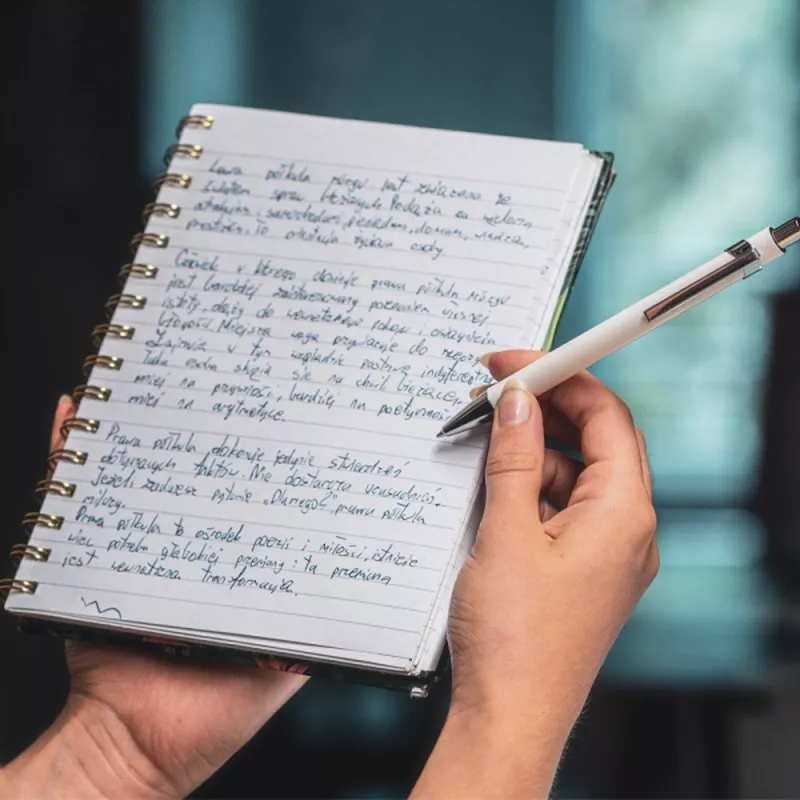 Lewa półkula mózgu jest związana ze
światem spraw bieżących. Podąża za wieloma
atrakcjami, samochodami, pieniędzmi, domami, władzą,
prestiżem, to orientacja życiowa osoby
Człowiek, u którego dominuje prawa półkula mózgu
jest bardziej zainteresowany poznaniem własnej
istoty, dąży do wewnętrznego pokoju i
błogości. Mniejszą wagę przywiązuje do rzeczy.
Zajmuje w tym względzie postawę indyferentną
Taka osoba skupia się na chwili bieżącej,
mniej na przyszłości, bardziej na poetyckości,
mniej na arytmetyce.
Prawa półkula dokonuje jedynie stwierdzeń
dotyczących faktów. Nie dostarcza
Jeżeli zadajesz pytanie „Dlaczego?”, prawa półkula
milczy.
Prawa półkula to ośrodek poezji i miłości, istnieje
więc potrzeba głębokiej przemiany: ta przemiana
jest wewnętrzną transformacją.